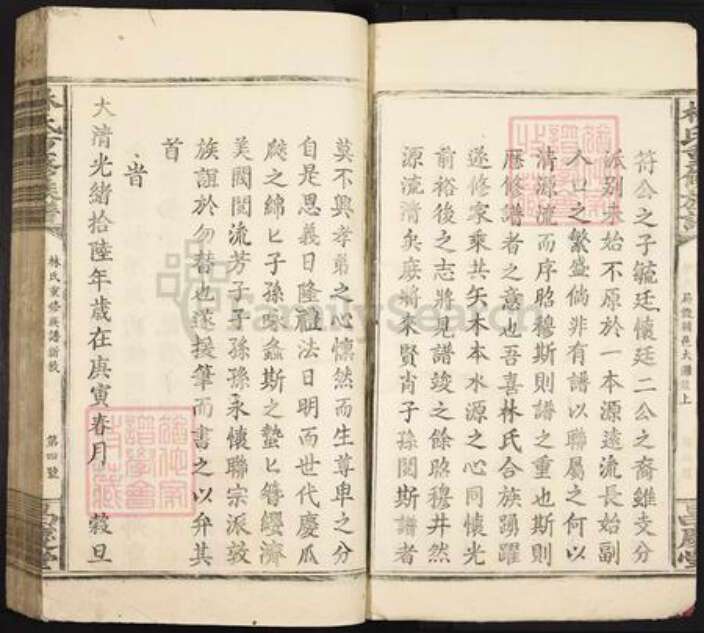 符公之子毓廷懷廷二公之裔雖支分
派別未始不原於一本源遠流長始副
人口之繁盛倘非有譜以聯屬之何以
清源流而序昭穆斯則譜之重也斯則
歷修譜者之意也吾喜林氏合族踴躍
遂修家乘共矢木本水源之心同懷光
前裕後之志將見譜竣之餘昭穆井然
源流清矣庶將來賢肖子孫閱斯譜者
莫不興孝弟之心懍然而生尊卑之分
自是恩義日隆禮法日明而世代慶瓜
瓞之綿匕子孫咏螽斯之蟄匕簪纓濟
美閥閱流芳子子孫孫永懷聯宗派敦
族誼於勿替也遂援筆而書之以弁其
首
旹
大清光緒拾陸年歲在庚寅春月 穀旦
林氏重修族譜
林氏重修族譜新敘
第四號
FamilySearch